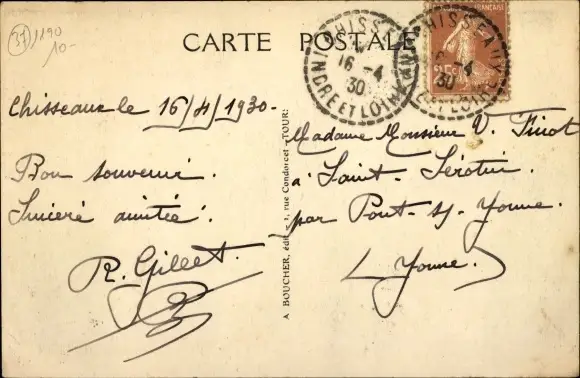 37
1190
10-
CARTE POSTALE
CHISSEAUX
16-4
30
INDRE ET LOIRE
CHISSEAUX
16-4
30
Chisseaux le 16/4/1930-
Bon souvenir.
Sincère amitié.
R. Gillet.
A BOUCHER, édit - 1, rue Condorcet - TOURS
Madame Monsieur V. Finot
à Saint-Sérotin.
par Pont-s/-Yonne.
(Yonne.)